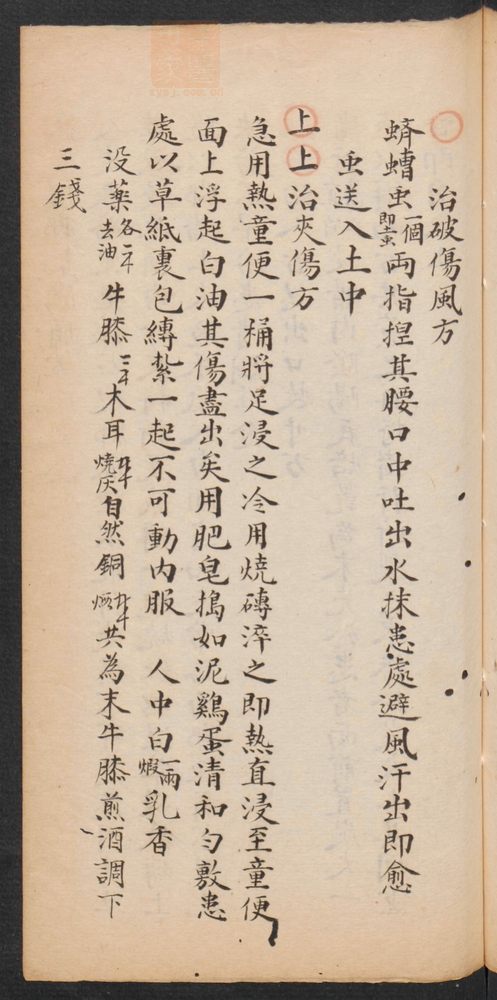 治破傷風方
蠐螬虫一個即蚕虫両指揑其腰口中吐出水抹患處避風汗出即愈
虫送入土中
上上治夾傷方
急用熱童便一桶將足浸之冷用燒磚淬之即熱直浸至童便
面上浮起白油其傷盡出矣用肥皂搗如泥鷄蛋清和勻敷患
處以草紙裏包縛紮一起不可動内服 人中白煆一兩乳香
没藥各二千去油牛膝二千木耳燒灰自然銅煆共為末牛膝煎酒調下
三錢